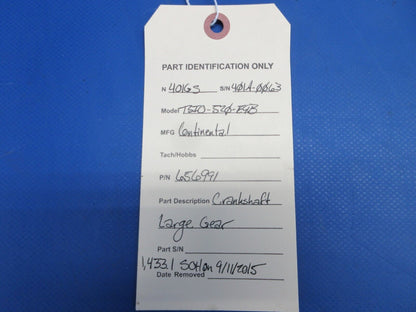 PART IDENTIFICATION ONLY
N 401GS S/N 401A-0063
Model TSIO-520-EB
MFG Continental
Tach/Hobbs
P/N 656991
Part Description Crankshaft
Large Gear
Part S/N
1,433.1 SOH on 9/11/2015
Date Removed